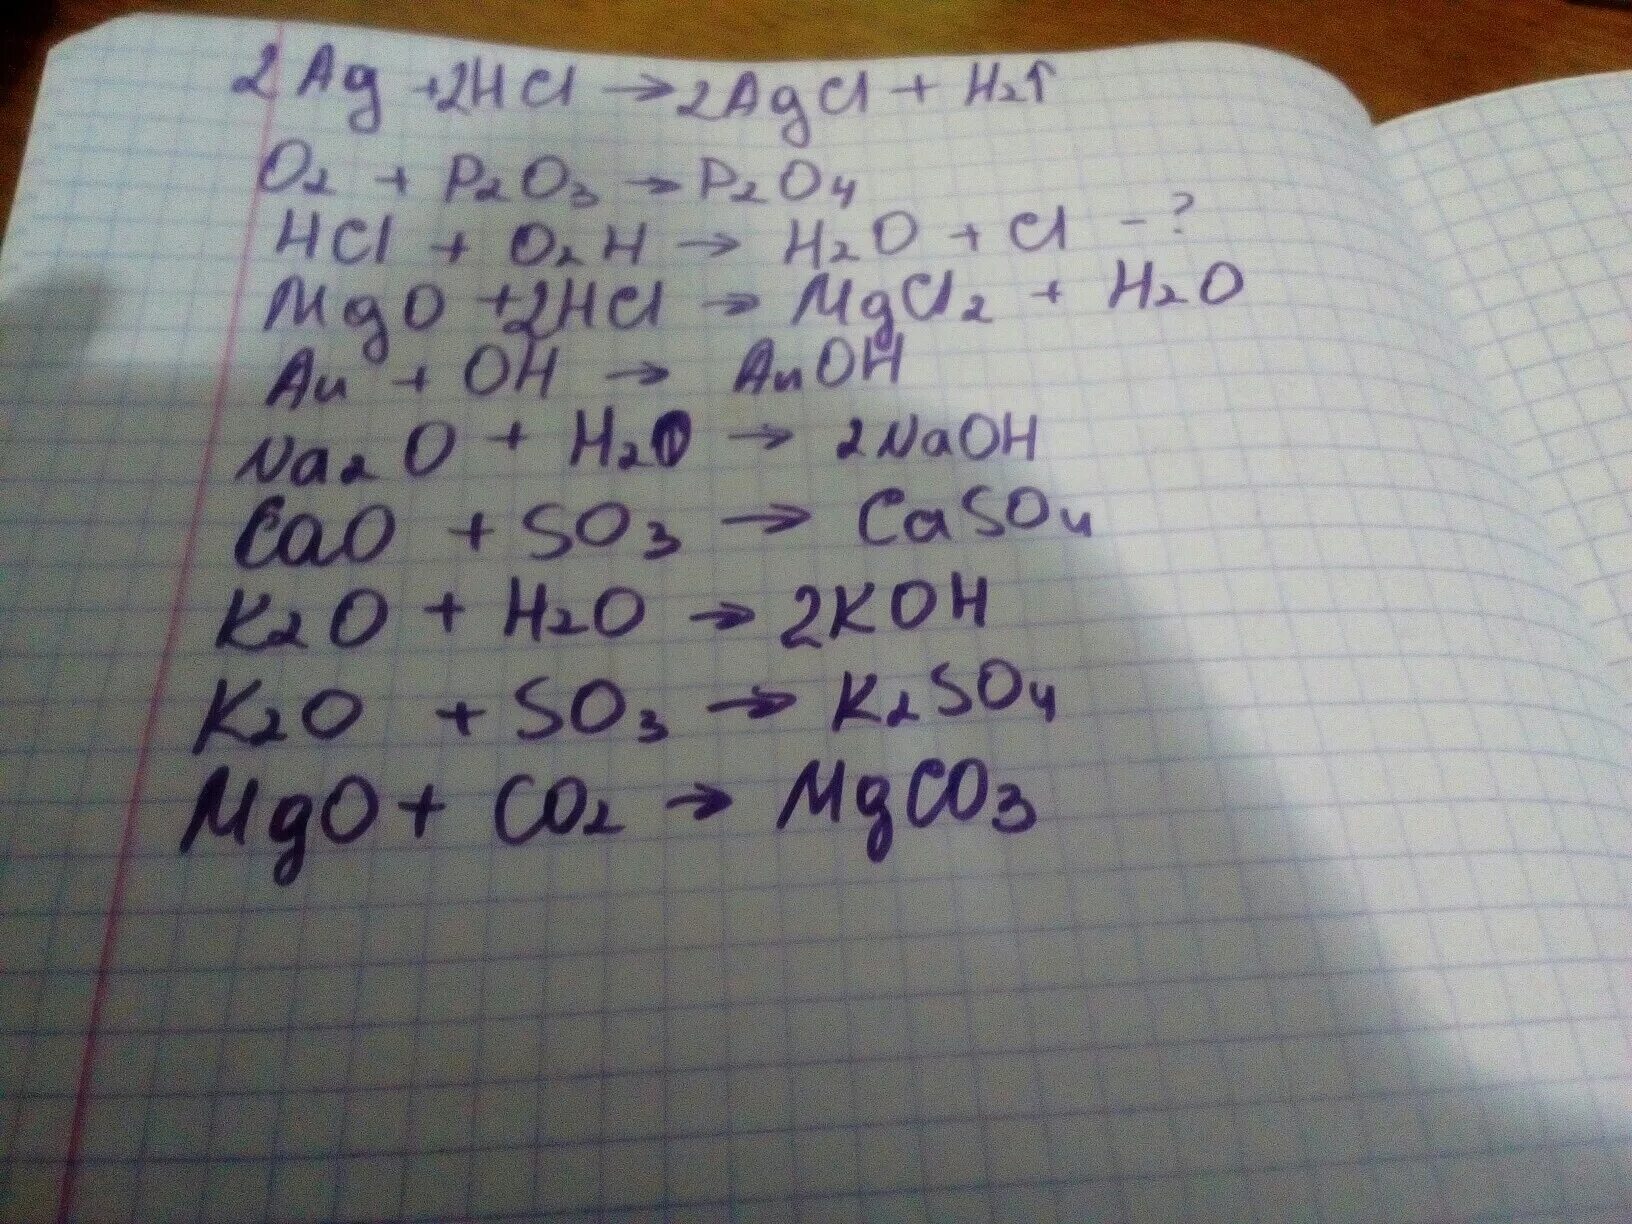 2Ag +2HCl → 2AgCl + H₂↑
O₂ + P₂O₃ → P₂O₄
HCl + O₂H → H₂O + Cl - ?
MgO +2HCl → MgCl₂ + H₂O
Au + OH → AuOH
Na₂O + H₂O → 2NaOH
CaO + SO₃ → CaSO₄
K₂O + H₂O → 2KOH
K₂O + SO₃ → K₂SO₄
MgO + CO₂ → MgCO₃